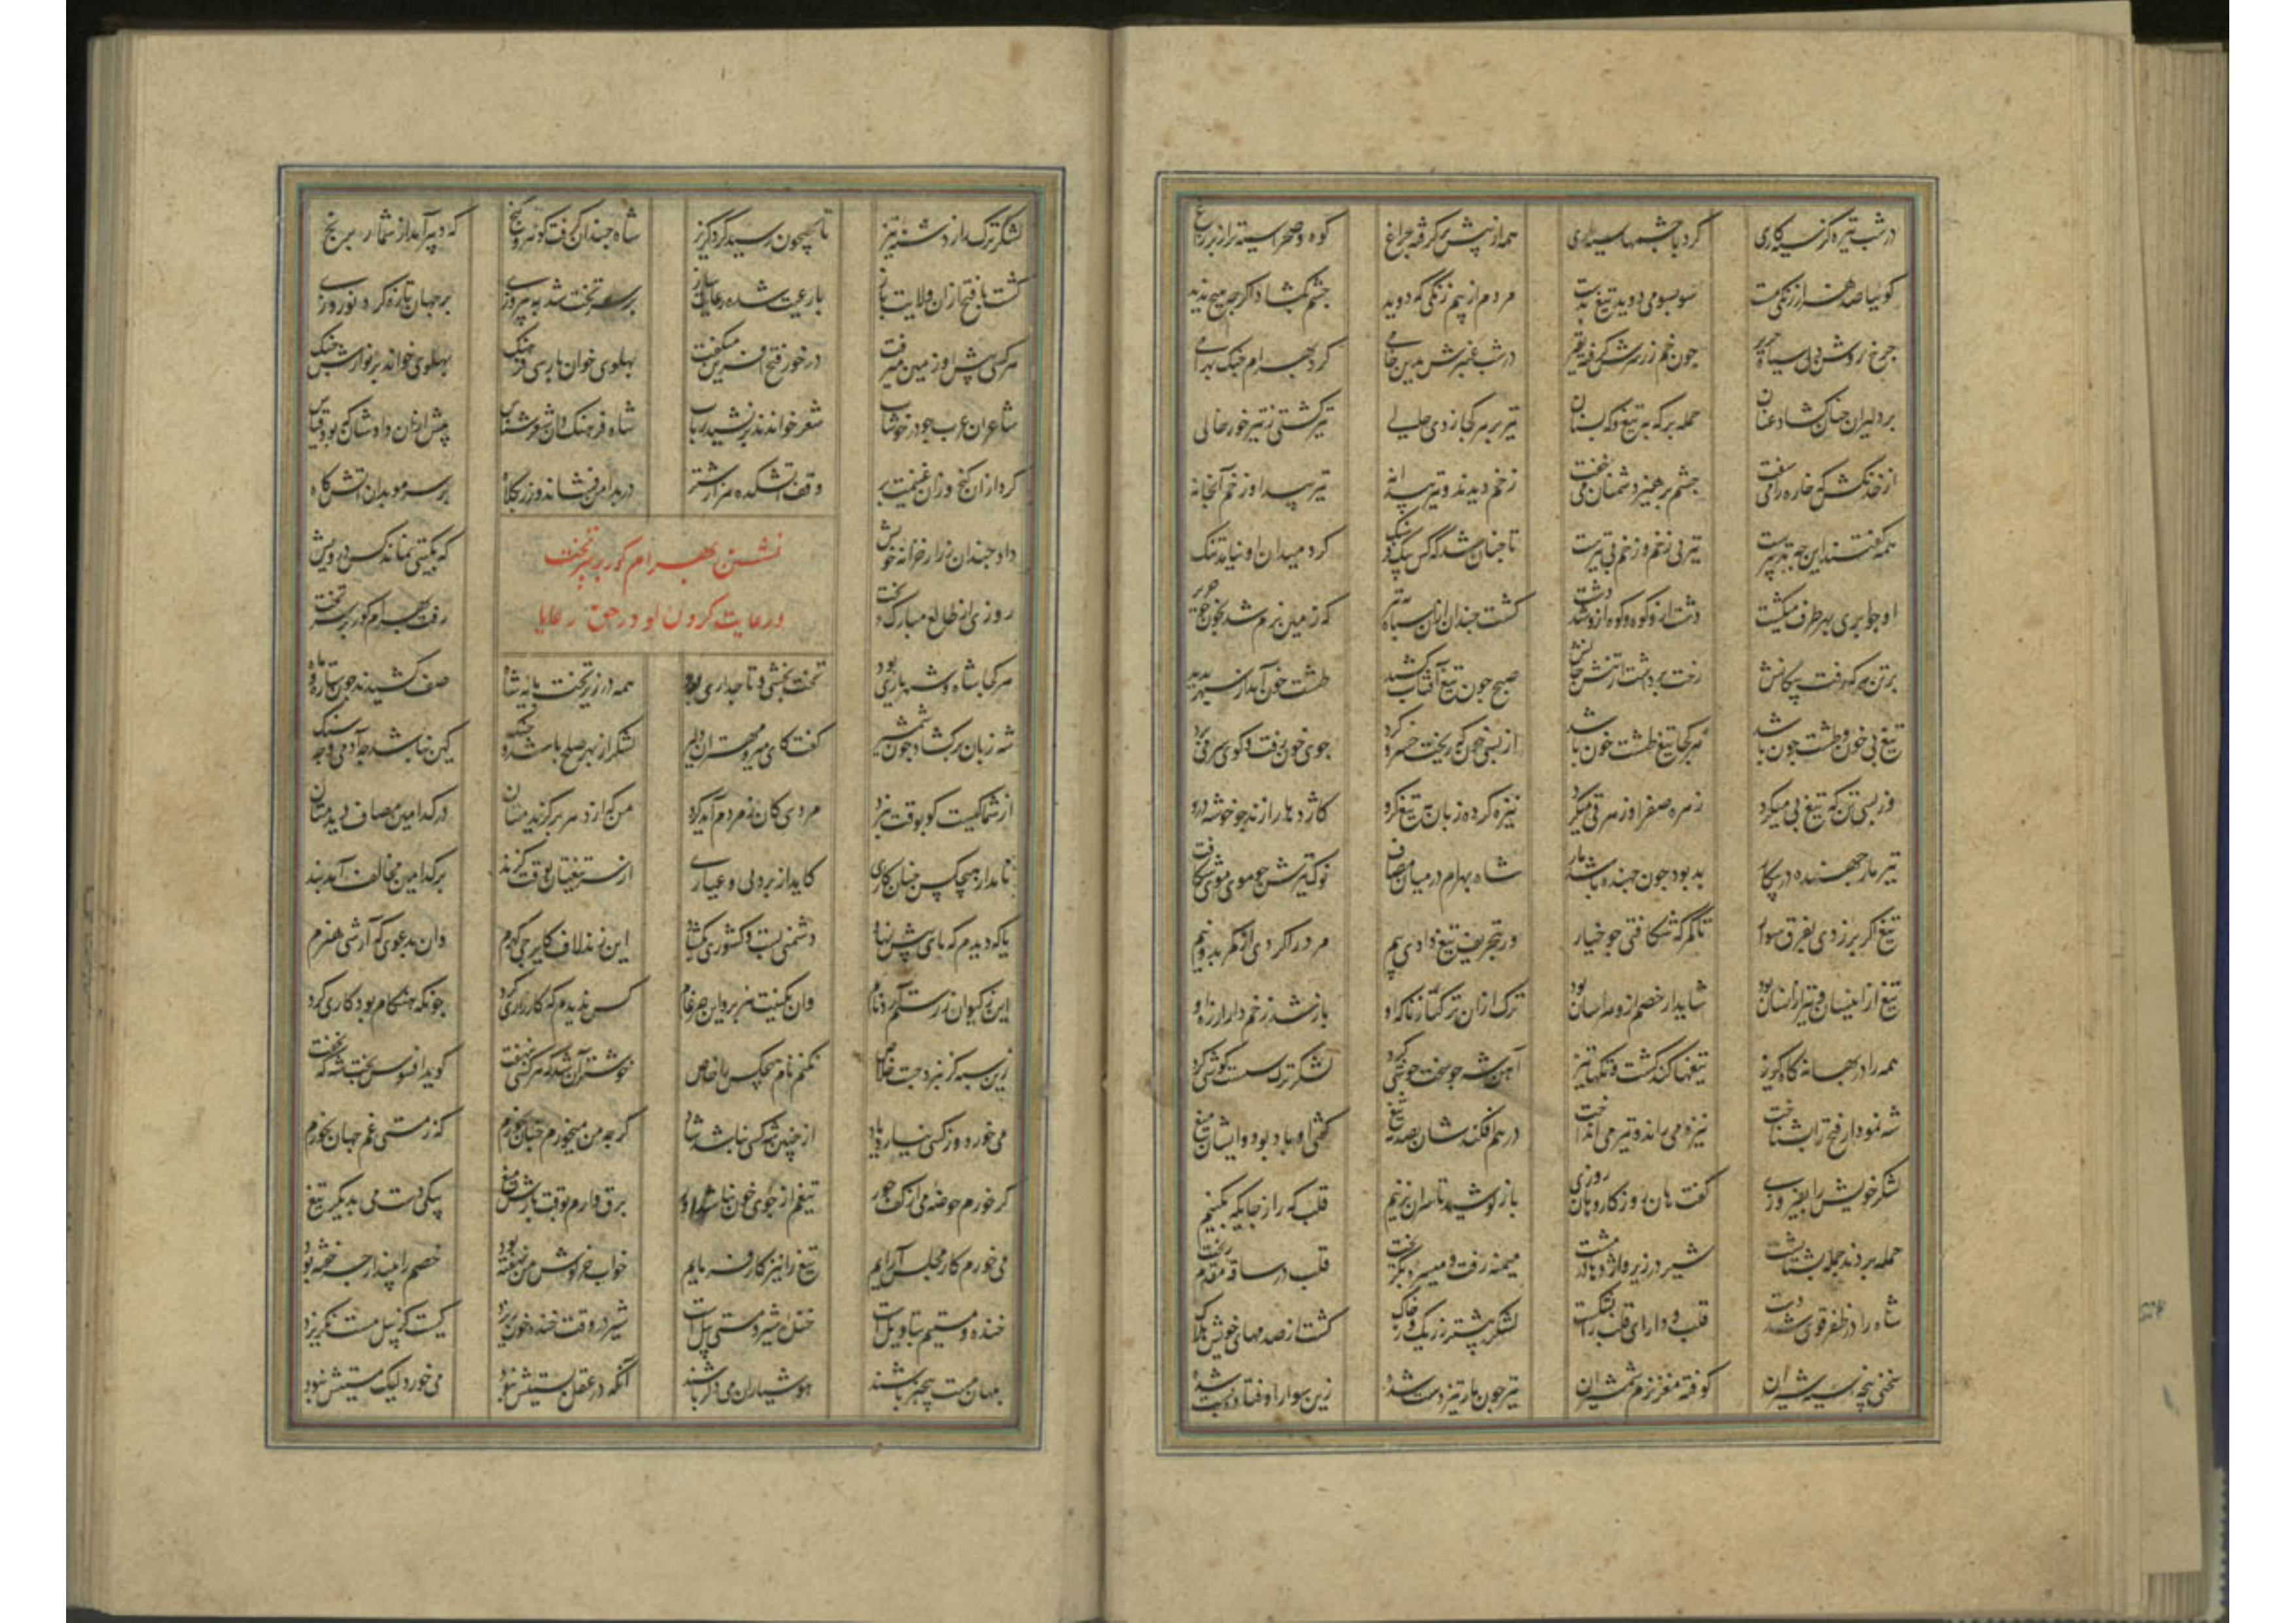 در شب تیره کز سیه کاری کرد با چشمها سیه داری همه از پیش بر گرفته چراغ کوه و صحرا سیه تر از پر زاغ
گوییا صد هزار زنگی مست سو بسو می دوید تیغ بدست مردم از بیم زنگی که دوید چشم بگشاد اگر چه هیچ ندید
چرخ روشن دل سیاه حریر چون خم زر سرش گرفته بقیر در شب عنبرش بدین خامی کرد بهرام جنگ بهرامی
بر دلیران چنان گشاد عنان حمله بر که به تیغ و گه بسنان تیر بر هر کجا زدی حالی تیر گشتی ز تیر خور خالی
از خدنگش که خاره را می سفت چشم پرهیز دشمنان می خفت زخم دیدند و تیر پیدا نه تیر پیدا و زخم آنجا نه
همه گفتند این چه تدبیرست تیر بی زخم و زخم بی تیرست تا چنان شد که کس بیک فرسنگ گرد میدان او نیامد تنگ
او چو ابری بهر طرف میگشت دشت ازو کوه و کوه ازو شد دشت کشت چندان ازان سپاه بتیر که زمین نرم شد بخون چو حریر
بر تن هر که رفت پیکانش رخت برداشت از تنش جانش صبح چون تیغ آفتاب کشید طشت خون آمد از سپهر پدید
تیغ بی خون و طشت چون باشد هر کجا تیغ طشت خون باشد از بسی خون که ریخت خسرو کرد جوی خون رفت و گوی سر می برد
وز بسی تن که تیغ پی میکرد زهره صفرا و زهر قی میکرد نیزه کرده زبان چه تیغ گرو کاژدها را زند چو خوشه درو
تیر مار جهنده در پیکار بد بود چون جهنده باشد مار شاه بهرام در میان مصاف نوک تیرش چو موی موی شکاف
تیغ اگر بر زدی بفرق سوار تا کمرگه شکافتی چو خیار ور بتحریف تیغ دادی بیم مرد را کردی از کمر بدو نیم
تیغ از اینسان و تیر از انسان بود شاید ار خصم ازو هراسان بود ترک ازان ترکتاز ناگه او باز نشد زخم دارا زه او
همه را در بهانه گاه گریز تیغها کند گشت و تکها تیز آهن شه چو سخت جوشی کرد لشکر ترک سست کوشی کرد
شه نمودار فتح را بشناخت نیزه می راند و تیر می انداخت در هم افکندشان بصدمه تیغ گفتی او باد بود و ایشان میغ
لشکر خویش را بفیروزی گفت هان روز کار و هان روزی باز کوشید تا سران بزنیم قلبگه را ز جایگه بکنیم
حمله بردند جمله پشتاپشت شیر در زیر و اژدها در مشت میمنه رفت و میسره بگریخت قلب در ساقه مقدم ریخت
شاه را در ظفر قوی شد دست قلب و دارای قلب را بشکست لشکر بیشتر ز ریگ و ز خاک گشت از صدمهای خویش هلاک
سختی پنجه سیه شیران کوفته مغز نرم شمشیران تیر چون مار تیز دست شده زین سواران فتاده پست شده
لشکر ترک را ز دشنه تیز تا بجیحون رسید گرد گریز شاه چندان گرفت کوه و گنج که دبیر آمد از شمار برنج
گشت با فتح ازان ولایت باز با رعیت شده رعایت ساز بر سر تخت شد به پیروزی بر جهان تازه کرد نوروزی
هر کسی پیش او زمین میرفت در خور فتح آفرین میگفت پهلوی خوان پارسی فرهنگ پهلوی خواند بر نوازش چنگ
شاعران عرب چو در خوشاب شعر خواندند بر نشید رباب شاه فرهنگ دان شعر شناس بیش از ان دادشان که بود قیاس
کرد ازان گنج وزان غنیمت پر وقف آتشکده هزار شتر در بدامن فشاند و زر بکلاه بر سر موبدان آتش گاه
داد چندان زر از خزانه خویش که بگیتی نماند کس درویش
نشستن بهرام گور بر سر تخت
و رعایت کردن او در حق رعایا
روزی از طالع مبارک بخت رفت بهرام گور بر سر تخت
هر کجا شاه و شهریاری بود تخت بخشی و تاجداری بود همه در زیر تخت پایه شاه صف کشیدند چون ستاره و ماه
شه زبان برگشاد چون شمشیر گفت کای میر و مهتران دلیر لشکر از بهر صلح باشد و جنگ کین نباشد چه آدمی و چه سنگ
از شما کیست کو بوقت نبرد مردی کان ز مردم آید کرد من که از دهر برگزیدمتان در کدامین مصاف دیدمتان
نامد از هیچکس چنان کاری کاید از پردلی و عیاری از سر تیغتان بوقت گزند بر کدامین مخالف آمد بند
یا که دیدم که پای پیش نهاد دشمنی بست و کشوری بگشاد این زند لاف کایرجی گهرم وان بدعوی که آرشی هنرم
این ز گیو آن ز رستم آرد نام وان کنیت هزبر و این ضرغام کس ندیدم که کارزاری کرد چونکه هنگام بود کاری کرد
خوشتر آن شد که هر کسی بنهفت گوید افسوس بخت شه که بخفت زین سپه کز نبرد جست خلاص نکنم نام هیچکس با خاص
می خورد وز کسی نیارد یاد از چنین شه کسی نباشد شاد گر چه من میخورم چنان نخورم که ز مستی غم جهان نخورم
گر خورم حوضه می از کف حور تیغم از جوی خون نباشد دور برق وارم بوقت بارش میغ بیکی دست می بدیگر تیغ
می خورم کار مجلس آرایم تیغ را نیز کار فرمایم خواب خرگوش من نهفته بود خصم را بیند ار چه خفته بود
خنده و مستیم بتاویل است خنده شیر و مستی پیل است شیر در وقت خنده خون ریزد کیست کز پیل مست نگریزد
ابلهان مست و بیخبر باشند هوشیاران می دگر باشند آنکه در عقل پستیش نبود می خورد لیک مستیش نبود